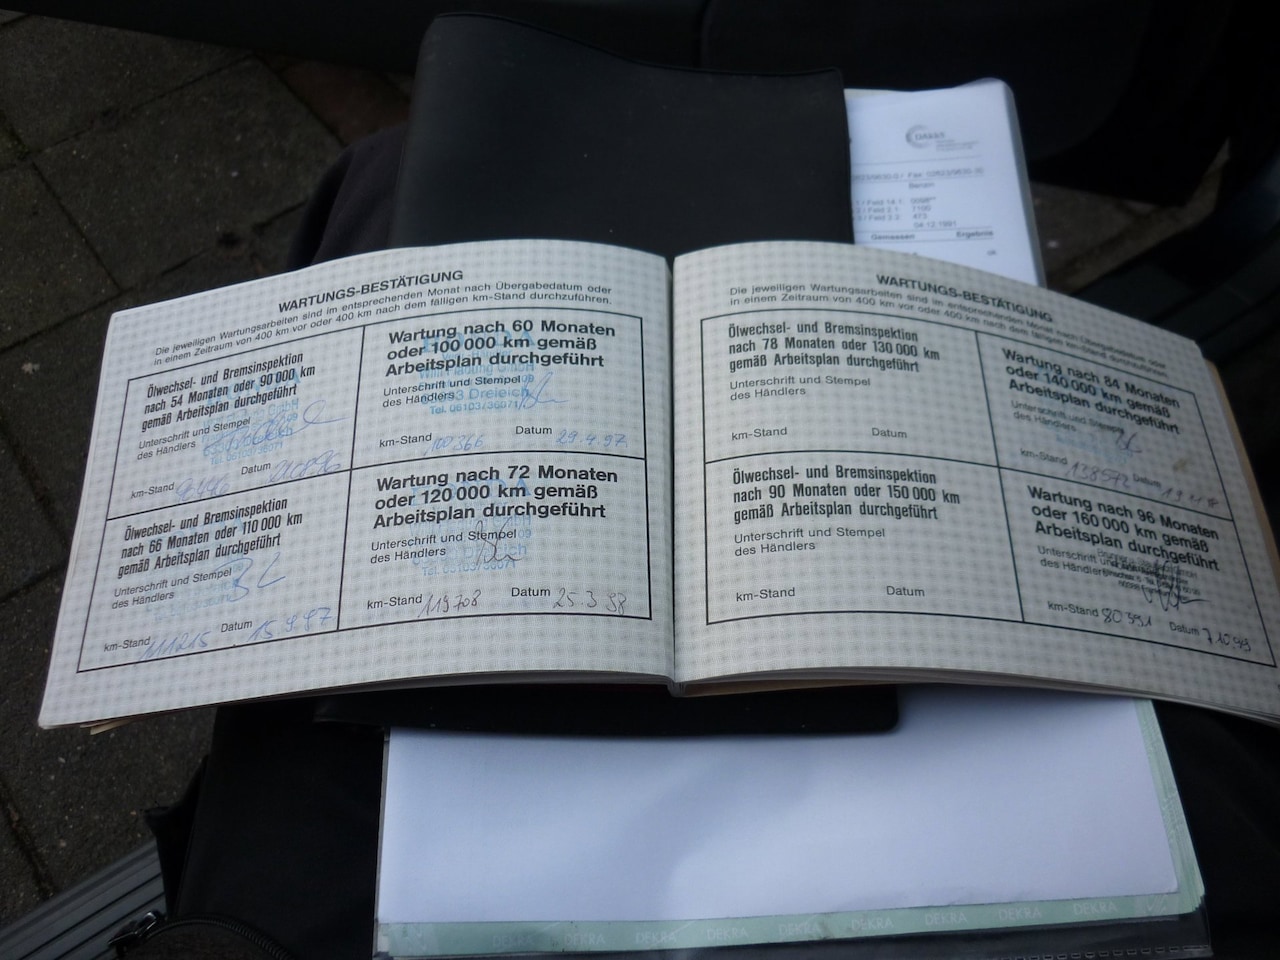 Benzin
Gemessen Ergebnis
WARTUNGS-BESTÄTIGUNG
Die jeweiligen Wartungsarbeiten sind im entsprechenden Monat nach Übergabedatum oder
in einem Zeitraum von 400 km vor oder 400 km nach dem fälligen km-Stand durchzuführen.
Ölwechsel- und Bremsinspektion
nach 54 Monaten oder 90 000 km
gemäß Arbeitsplan durchgeführt
Unterschrift und Stempel
des Händlers
km-Stand Datum
Wartung nach 60 Monaten
oder 100 000 km gemäß
Arbeitsplan durchgeführt
Unterschrift und Stempel
des Händlers
Dreieich
Tel. 06103/36071
km-Stand 100366 Datum 29.4.97
Ölwechsel- und Bremsinspektion
nach 66 Monaten oder 110 000 km
gemäß Arbeitsplan durchgeführt
Unterschrift und Stempel
des Händlers
km-Stand 111215 Datum 15.9.97
Wartung nach 72 Monaten
oder 120 000 km gemäß
Arbeitsplan durchgeführt
Unterschrift und Stempel
des Händlers
Tel. 06103/36071
km-Stand 119708 Datum 25.3.98
WARTUNGS-BESTÄTIGUNG
Die jeweiligen Wartungsarbeiten sind im entsprechenden Monat nach Übergabedatum oder
in einem Zeitraum von 400 km vor oder 400 km nach dem fälligen km-Stand durchzuführen.
Ölwechsel- und Bremsinspektion
nach 78 Monaten oder 130 000 km
gemäß Arbeitsplan durchgeführt
Unterschrift und Stempel
des Händlers
km-Stand Datum
Wartung nach 84 Monaten
oder 140 000 km gemäß
Arbeitsplan durchgeführt
Unterschrift und Stempel
des Händlers
km-Stand 138572 Datum
Ölwechsel- und Bremsinspektion
nach 90 Monaten oder 150 000 km
gemäß Arbeitsplan durchgeführt
Unterschrift und Stempel
des Händlers
km-Stand Datum
Wartung nach 96 Monaten
oder 160 000 km gemäß
Arbeitsplan durchgeführt
Unterschrift
des Händlers
km-Stand 80391 Datum 7.10.99
DEKRA DEKRA DEKRA DEKRA DEKRA DEKRA DEKRA DEKRA